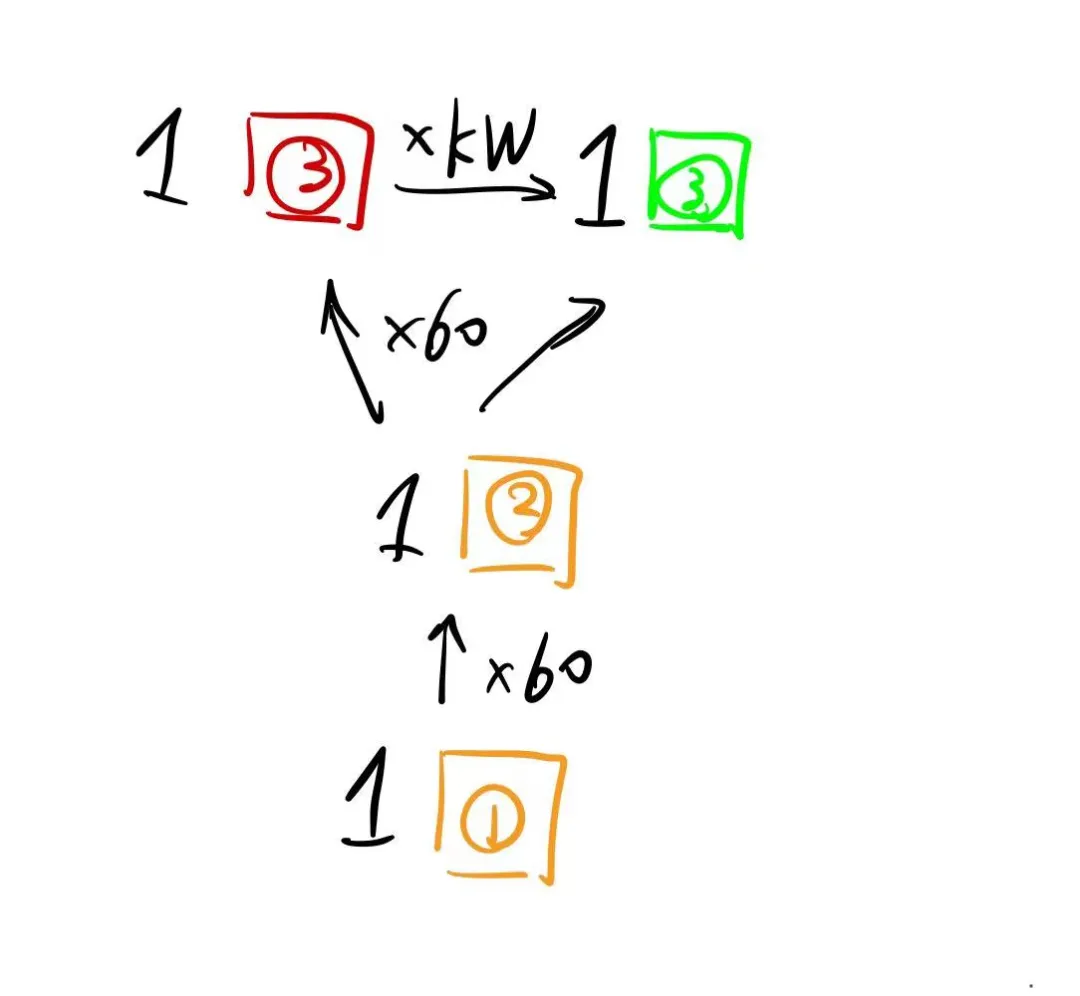 1 ③ ×kW 1 ③
×60
1 ②
×60
1 ①